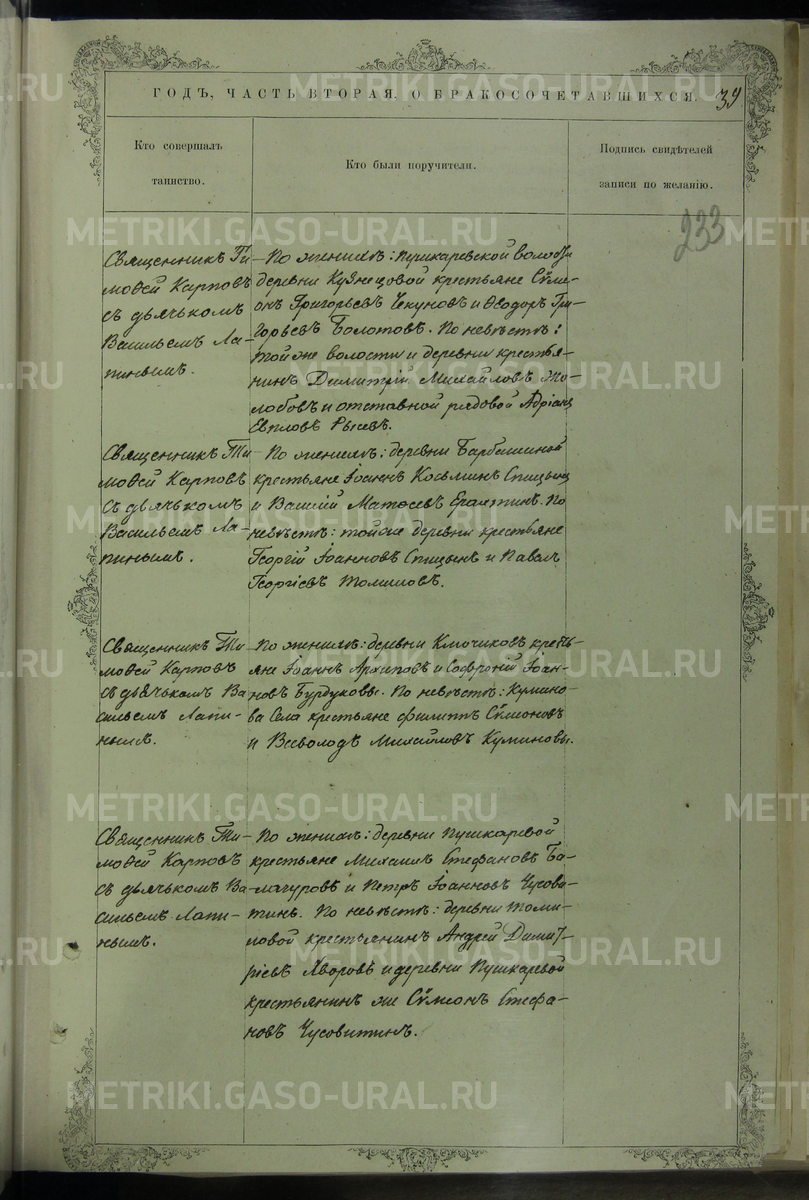 ГОДЪ, ЧАСТЬ ВТОРАЯ, О БРАКОСОЧЕТАВШИХСЯ.
39
Кто совершалъ
таинство.
Кто были поручители.
Подпись свидѣтелей
записи по желанію.
233
Священникъ Ти-
моѳей Карповъ
съ дьячькомъ
Васильемъ Ла-
пинымъ.
По женихѣ: Пушкаревской волости
деревни Кузнецовой крестьяне Сѵме-
онъ Григорьевъ Чекуновъ и Ѳеодоръ Гри-
горьевъ Болотовъ. По невѣстѣ:
той же волости и деревни крестья-
нинъ Димитрій Михайловъ Жо-
лобовъ и отставной рядовой Адріанъ
Евпловъ Рысевъ.
Священникъ Ти-
моѳей Карповъ
съ дьячькомъ
Васильемъ Ла-
пинымъ.
По женихѣ: деревни Барбашиной
крестьяне Іоаннъ Косьминъ Спицынъ
и Василій Матѳеевъ Ерахтинъ. По
невѣстѣ: той же деревни крестьяне
Георгій Іоанновъ Спицынъ и Павелъ
Георгіевъ Томиловъ.
Священникъ Ти-
моѳей Карповъ
съ дьячькомъ Ва-
сильемъ Лапи-
нымъ.
По женихѣ: деревни Ключиковъ кресть-
яне Іоаннъ Архиповъ и Софроній Іоан-
новъ Бурдуковы. По невѣстѣ: Кумино-
ва Села крестьяне Филиппъ Сѵмеоновъ
и Всеволодъ Михайловъ Куминовы.
Священникъ Ти-
моѳей Карповъ
съ дьячькомъ Ва-
сильемъ Лапи-
нымъ.
По женихѣ: деревни Пушкаревой
крестьяне Михаилъ Стефановъ Ба-
лачуровъ и Петръ Іоанновъ Чусови-
тинъ. По невѣстѣ: деревни Томи-
ловой крестьянинъ Андрей Димит-
ріевъ Яворовъ и деревни Пушкаревой
крестьянинъ же Сѵмеонъ Стефа-
новъ Чусовитинъ.
METRIKI.GASO-URAL.RU